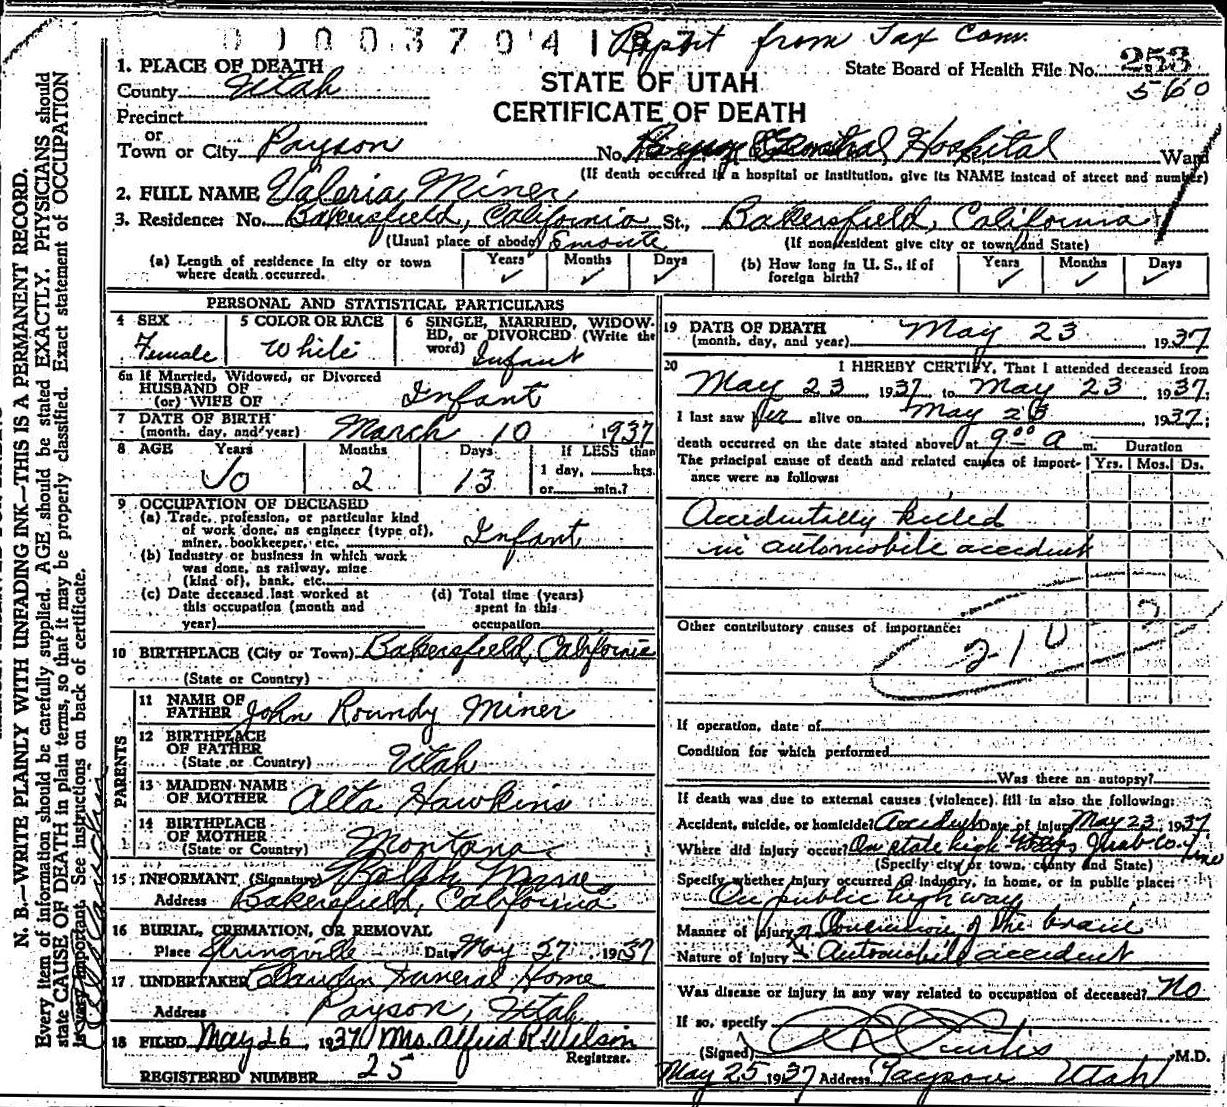 0 0 0 3 7 0 4 1 Report from Tax Com.
State Board of Health File No. 253
560
STATE OF UTAH
CERTIFICATE OF DEATH
1. PLACE OF DEATH
County Utah
Precinct
or
Town or City Payson No. Payson General Hospital Ward
(If death occurred in a hospital or institution, give its NAME instead of street and number)
2. FULL NAME Valeria Miner
3. Residence: No. Bakersfield, California St., Bakersfield, California
(Usual place of abode) (If nonresident give city or town and State)
(a) Length of residence in city or town where death occurred. Years Months Days (b) How long in U. S., if of foreign birth? Years Months Days
PERSONAL AND STATISTICAL PARTICULARS
4 SEX Female
5 COLOR OR RACE White
6 SINGLE, MARRIED, WIDOWED, or DIVORCED (Write the word) Infant
6a If Married, Widowed, or Divorced
HUSBAND OF
(or) WIFE OF Infant
7 DATE OF BIRTH
(month, day, and year) March 10 1937
8 AGE Years Months Days If LESS than
0 2 13 1 day, hrs.
or min.?
9 OCCUPATION OF DECEASED
(a) Trade, profession, or particular kind
of work done, as engineer (type of),
miner, bookkeeper, etc. Infant
(b) Industry or business in which work
was done, as railway, mine
(kind of), bank, etc.
(c) Date deceased last worked at
this occupation (month and
year)
(d) Total time (years)
spent in this
occupation
10 BIRTHPLACE (City or Town) Bakersfield, California
(State or Country)
PARENTS
11 NAME OF
FATHER John Roundy Miner
12 BIRTHPLACE
OF FATHER
(State or Country) Utah
13 MAIDEN NAME
OF MOTHER Alta Hawkins
14 BIRTHPLACE
OF MOTHER
(State or Country) Montana
15 INFORMANT (Signature) Ralph
Address Bakersfield, California
16 BURIAL, CREMATION, OR REMOVAL
Place Springville Date May 27 1937
17 UNDERTAKER Claudin Funeral Home
Address Payson, Utah
18 FILED May 26, 1937 Mrs. Alfred R Wilson
Registrar.
REGISTERED NUMBER 25
19 DATE OF DEATH
(month, day, and year) May 23 1937
20 I HEREBY CERTIFY, That I attended deceased from
May 23 1937 to May 23 1937
I last saw her alive on May 23 1937;
death occurred on the date stated above at 9 00 a m. Duration
The principal cause of death and related causes of importance were as follows: Yrs. Mos. Ds.
Accidentally killed
in automobile accident
Other contributory causes of importance:
210
If operation, date of
Condition for which performed
Was there an autopsy?
If death was due to external causes (violence) fill in also the following:
Accident, suicide, or homicide? Accident Date of injury May 23 1937
Where did injury occur? On state high way Juab Co. line
(Specify city or town, county and State)
Specify whether injury occurred in industry, in home, or in public place:
On public highway
Manner of injury Concussion of the brain
Nature of injury Automobile accident
Was disease or injury in any way related to occupation of deceased? No
If so, specify
(Signed) Curtis M.D.
May 25 1937 Address Payson Utah
N. B.—WRITE PLAINLY WITH UNFADING INK—THIS IS A PERMANENT RECORD.
Every item of information should be carefully supplied. AGE should be stated EXACTLY. PHYSICIANS should
state CAUSE OF DEATH in plain terms, so that it may be properly classified. Exact statement of OCCUPATION
is very important. See instructions on back of certificate.